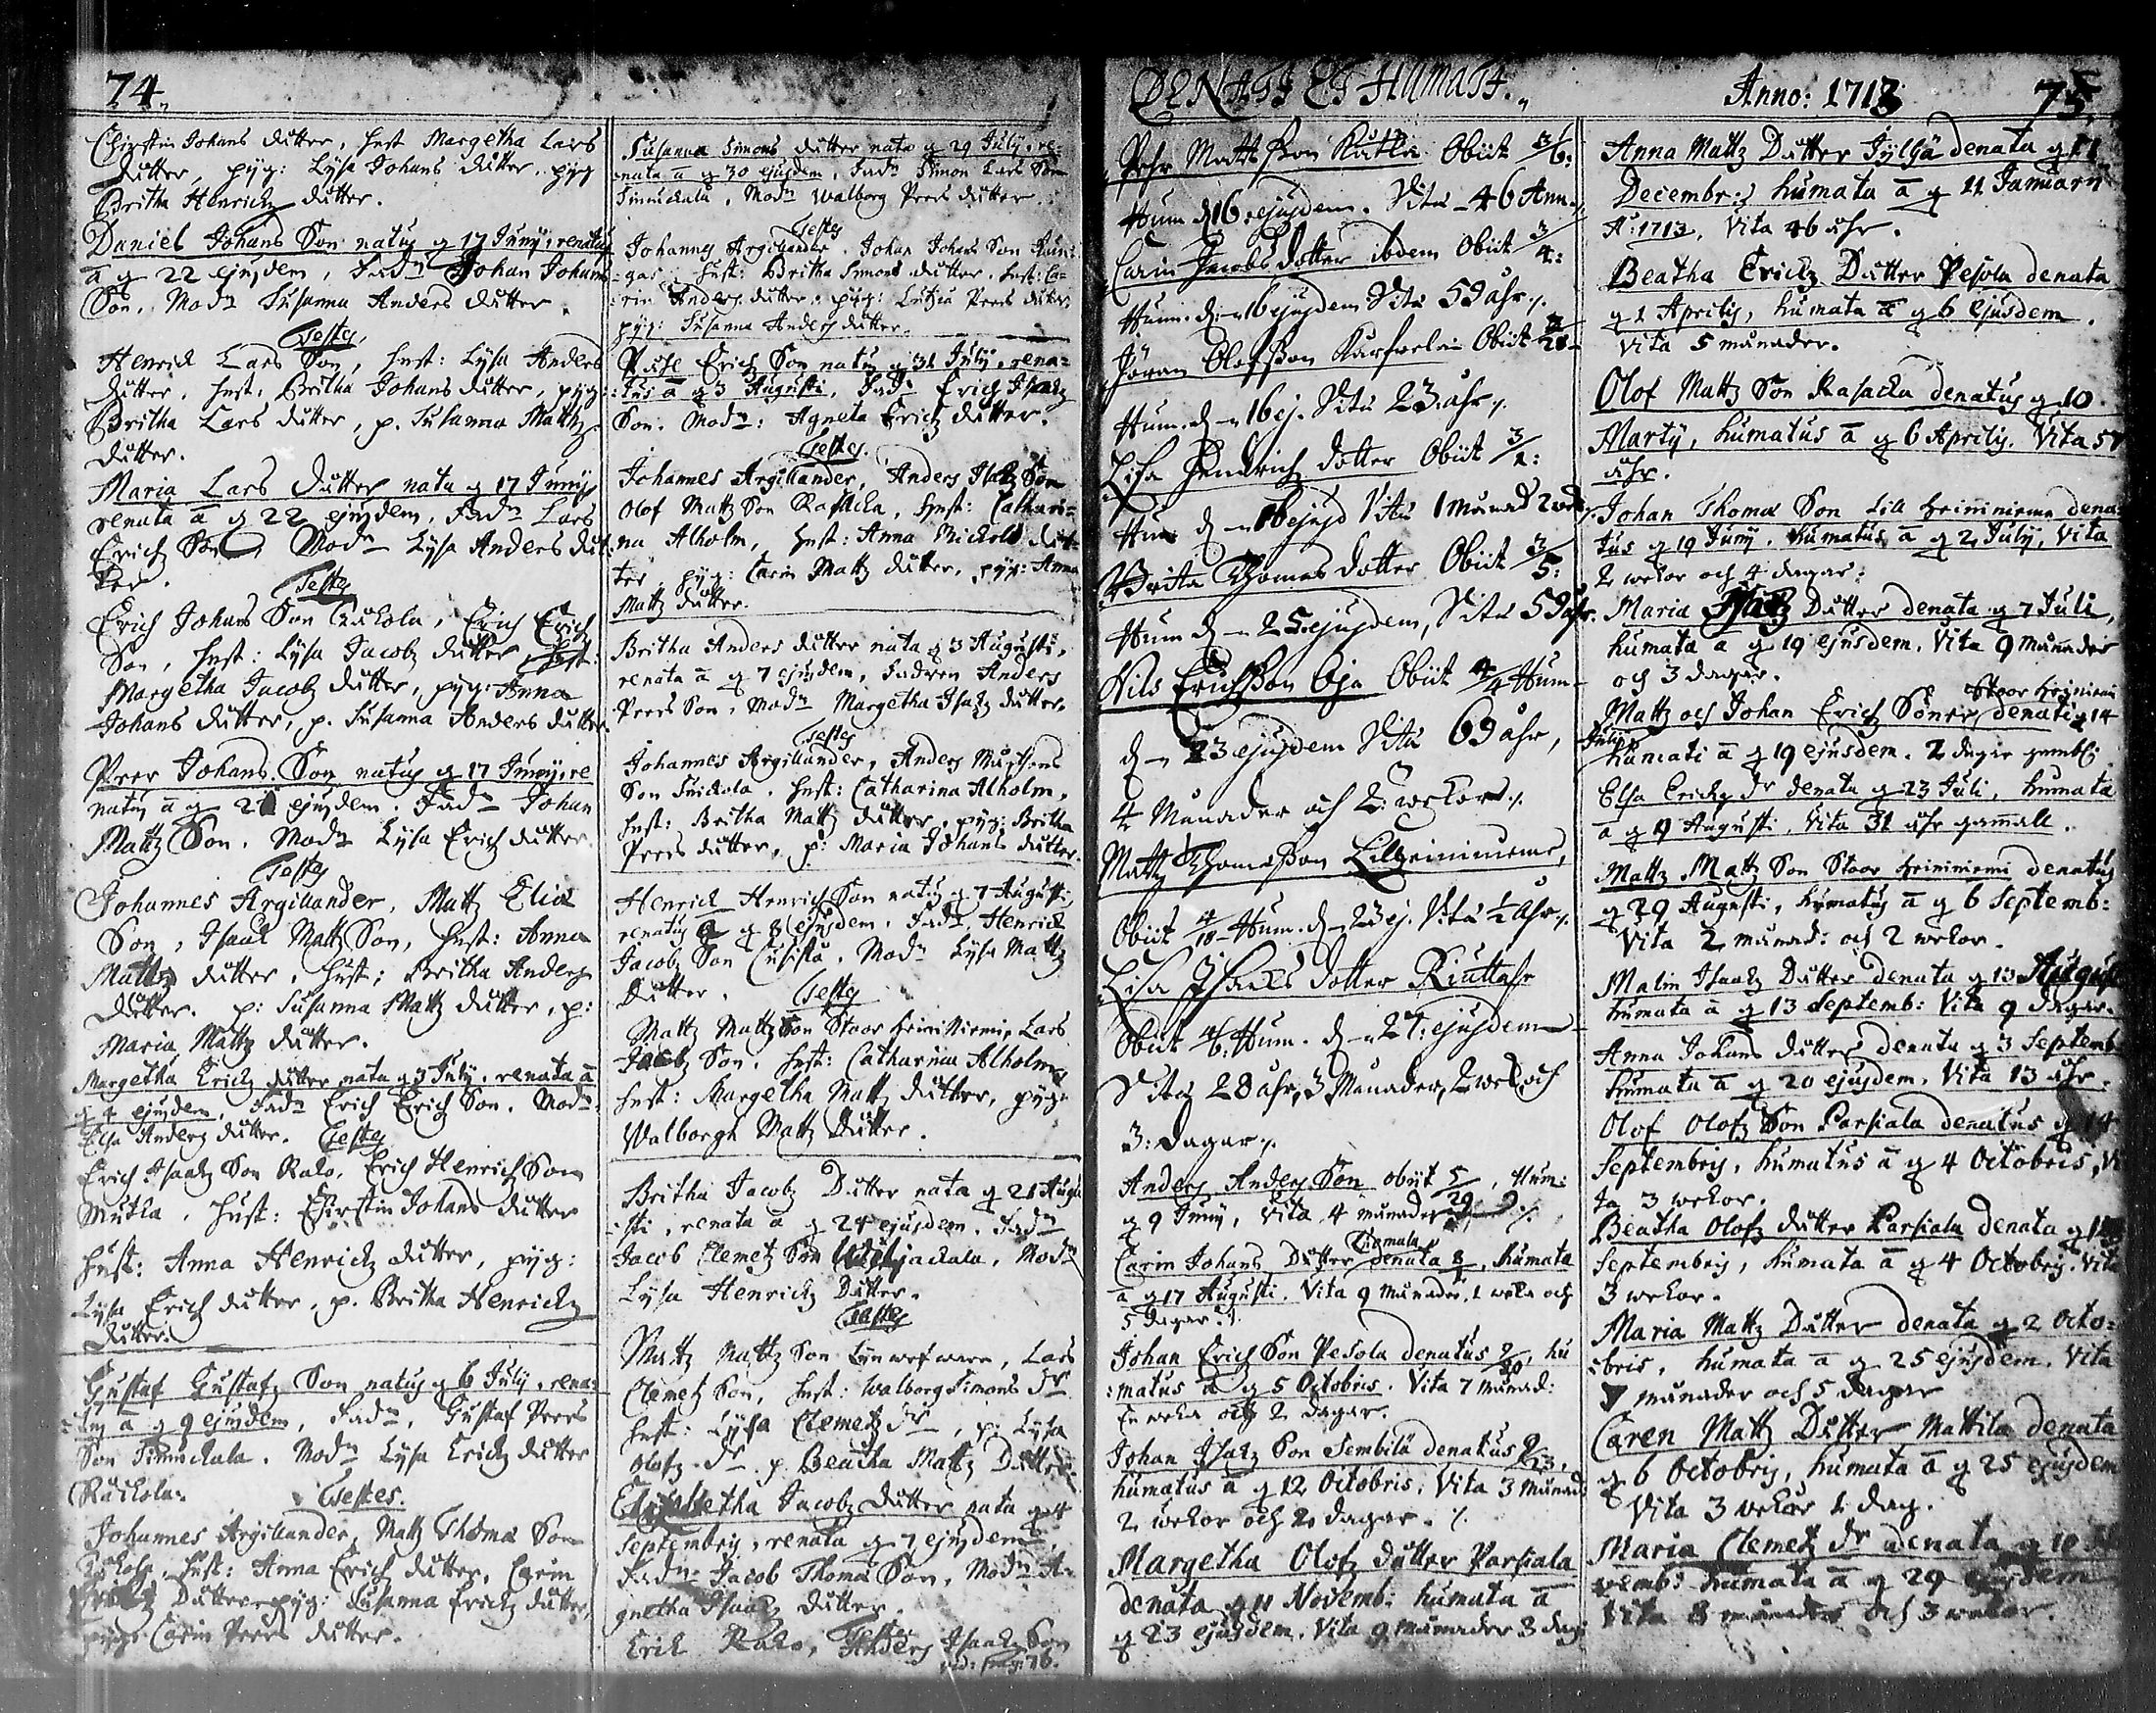 74
Chirstin Johans dutter, hust Margetha Lars
dutter, pyg: Lysa Johans dutter, pyg
Britha Henrichz dutter.
Daniel Johans Son natus q 17 Junij, renatus
a q 22 ejusdem, Fadn Johan Johans
Son, Modn Susanna Anders dutter.
Testes
Henrich Lars Son, hust: Lysa Anders
dutter, hust: Britha Johans dutter, pyg:
Britha Lars dutter, p. Susanna Mattz
dutter.
Maria Lars dutter nata q 17 Junij
renata a q 22 ejusdem, Fadn Lars
Erich Son, Modn Lysa Anders dut
ter.
Testes
Erich Johans Son Kukola, Erich Erich
Son, hust: Lysa Jacobz dutter, hust:
Margetha Jacobz dutter, pyg: Anna
Johans dutter, p. Susanna Anders dutter
Peer Johans Son natus q 17 Junij, re
natus a q 21 ejusdem. Fadn Johan
Mattz Son. Modn Lysa Erich dutter.
Testes
Johannes Argillander, Mattz Elia
Son, Isaac Mattz Son, hust: Anna
Mattz dutter, hust: Britha Anders
dutter. p: Susanna Mattz dutter, p:
Maria Mattz dutter.
Margetha Erichz dutter nata q 3 July, renata a
q 4 ejusdem, Fadn Erich Erich Son. Modn
Elsa Anders dutter. Testes
Erich Isaakz Son Rako, Erich Henrich Son
Mutka, hust: Chirstin Johans dutter
hust: Anna Henrichz dutter, pyg:
Lysa Erich dutter, p. Britha Henrichz
dutter.
Gustaf Gustafz Son natus q 6 July, rena=
tus a q 9 ejusdem, Fadn, Gustaf Peers
Son Simuckala. Modn Lysa Erichz dutter
Ruckola.
Testes.
Johannes Argillander, Mattz Thoma Son
hust: Anna Erich dutter, Carin
Dutter, pyg: Susanna Erichz dutter,
pyg: Carin Peers dutter.
Susanna Simons dutter nata q 29 July, re=
nata a q 30 ejusdem, Fadn Simon Lars Son
Simuckala, Modn Walborg Peers dutter.
Testes
Johannes Argillander. Johan Johans Son
hust: Britha Simons dutter. hust: Ca=
rin Anders dutter. pyg: Peers dutter,
pyg: Susanna Anders dutter.
Erich Son natus q 31 July, rena=
tus a q 3 Augusti, Fadn Erich Isaakz
Son. Modn: Agneta Erichz dutter.
Testes.
Johannes Argillander, Anders Isakz Son
Olof Mattz Son Rasacka, hust: Cathari=
na Alholm, hust: Anna Mickels dut=
ter, pyg: Carin Mattz dutter, pyg: Anna
Mattz dutter.
Britha Anders dutter nata q 3 Augusti,
renata a q 7 ejusdem, Fadren Anders
Peers Son, Modn Margetha Isakz dutter.
Testes
Johannes Argillander, Anders
Son hust: Catharina Alholm,
hust: Britha Mattz dutter, pyg: Britha
Peers dutter, p: Maria Johans dutter.
Henrich Henrich Son natus q 7 Augusti
renatus a q 8 ejusdem. Fadn, Henrich
Jacobz Son. Modn Lysa Mattz
dutter. Testes
Mattz Mattz Son Stoor heininiemi, Lars
Jacobz Son. hust: Catharina Alholm,
hust: Margetha Mattz dutter, pyg:
Walborgh Mattz dutter.
Britha Jacobz Dutter nata q 21 Augu
sti, renata a q 24 ejusdem. Fadn
Jacob Clemetz Son, Modn
Lysa Henrichz Dutter.
Testes
Mattz Mattz Son, Lars
Clemetz Son, hust: Walborg Simons dr
hust: Lysa Clemetz dr, p: Lysa
Olofz dr p. Beatha Mattz Dutter.
Elisabetha Jacobz dutter nata q 4
Septembris, renata q 7 ejusdem
Fadn Jacob Thoma Son, Modn A=
gnetha Isaakz dutter.
Testes
Erich Rako, Anders Isaakz Son
vid: pag: 76.
DENATI ET HUMATI.
Anno: 1713
75.
Pehr Mattsson Obiit 3/6:
Hum d 16 ejusdem. Vita 46 Ann.
Carin Jacobs dotter ibdem Obiit 3/4:
Hum. d. 16 ejusdem Vita 59 ahr.
Jöran Olofsson Obiit
Hum. d 16 ej. Vita 23 ahr.
Lisa Hendrichz dotter Obiit 3/1:
Hum d 16 ejusd Vita 1 Månad 2 wek
Brita Thomas dotter Obiit 3/5:
Hum d 25 ejusdem, Vita 59 ahr.
Nils Erichsson Oja Obiit 4/4 Hum
d 23 ejusdem Vita 69 ahr,
4 Månader och 2: wekor
Mattz Thomasson Lillheiniemi,
Obiit 4/18 Hum. d 23 ej. Vita 1/2 Ahr
Lisa Isacks dotter Riuttahr
Obiit 4/6. Hum. d 27: ejusdem
Vita 28 ahr, 3 Månader, 2 wek och
3: dagar
Anders Anders Son obiit 5/29, Hum:
q 9 Junij, Vita 4 månader
Kiemula
Carin Johans Dutter denata 8/1, humata
a q 17 Augusti. Vita 9 Månader, 1 weka och
5 dagar
Johan Erich Son Pesola denatus 9/20, hu
matus a q 5 Octobris. Vita 7 månad:
En weka och 2 dagar.
Johan Isakz Son Sembilä denatus 9/23,
humatus a q 12 Octobris. Vita 3 månad
2 wekor och 2 dagar.
Margetha Olofz dutter Parsiala
denata q 11 Novemb: humata a
q 23 ejusdem. Vita 9 månader 3 dag:
Anna Mattz Dutter Jylhä denata q
Decembr: humata a q 11 Januarij
A: 1713, Vita 46 ahr.
Beatha Erichz Dutter Pesola denata
q 1 Aprilis, humata a q 6 ejusdem.
Vita 5 månader.
Olof Mattz Son Rasacka denatus q 10
Martij, humatus a q 6 Aprilis. Vita 57
ahr.
Johan Thoma Son Lill heiniemi dena
tus q 19 Junij. humatus a q 2 July, Vita
2 wekor och 4 dagar:
Maria Isakz Dutter denata q 7 Juli,
humata a q 19 ejusdem. Vita 9 månader
och 3 dagar.
Stoor heiniemi
Mattz och Johan Erichz Söner denati q 14
Julij humati a q 19 ejusdem. 2 dagar gambl:
Elsa Erichz dr denata q 23 Juli, humata
a q 9 Augusti, Vita 31 ahr gamall.
Mattz Mattz Son Stoor heiniemi denatus
q 29 Augusti, humatus a q 6 Septemb:
Vita 2 månad: och 2 wekor.
Malin Isaakz Dutter denata q 13 August
humata a q 13 Septemb: Vita 9 dagar.
Anna Johans dutter denata q 3 Septemb
humata a q 20 ejusdem. Vita 13 ahr.
Olof Olofz Son Parsiala denatus q 14
Septembris, humatus a q 4 Octobris, Vi
ta 3 wekor.
Beatha Olofz dutter Parsiala denata q
Septembris, humata a q 4 Octobris. Vita
3 wekor.
Maria Mattz Dutter denata q 2 Octo=
bris, humata a q 25 ejusdem. Vita
7 månader och 5 dagar
Caren Mattz Dutter Mattila denata
q 6 Octobris, humata a q 25 ejusdem
Vita 3 wekor 1 dag.
Maria Clemetz dr denata q 10
vemb: humata a q 29 ejusdem
Vita 8 månader och 3 wekor.